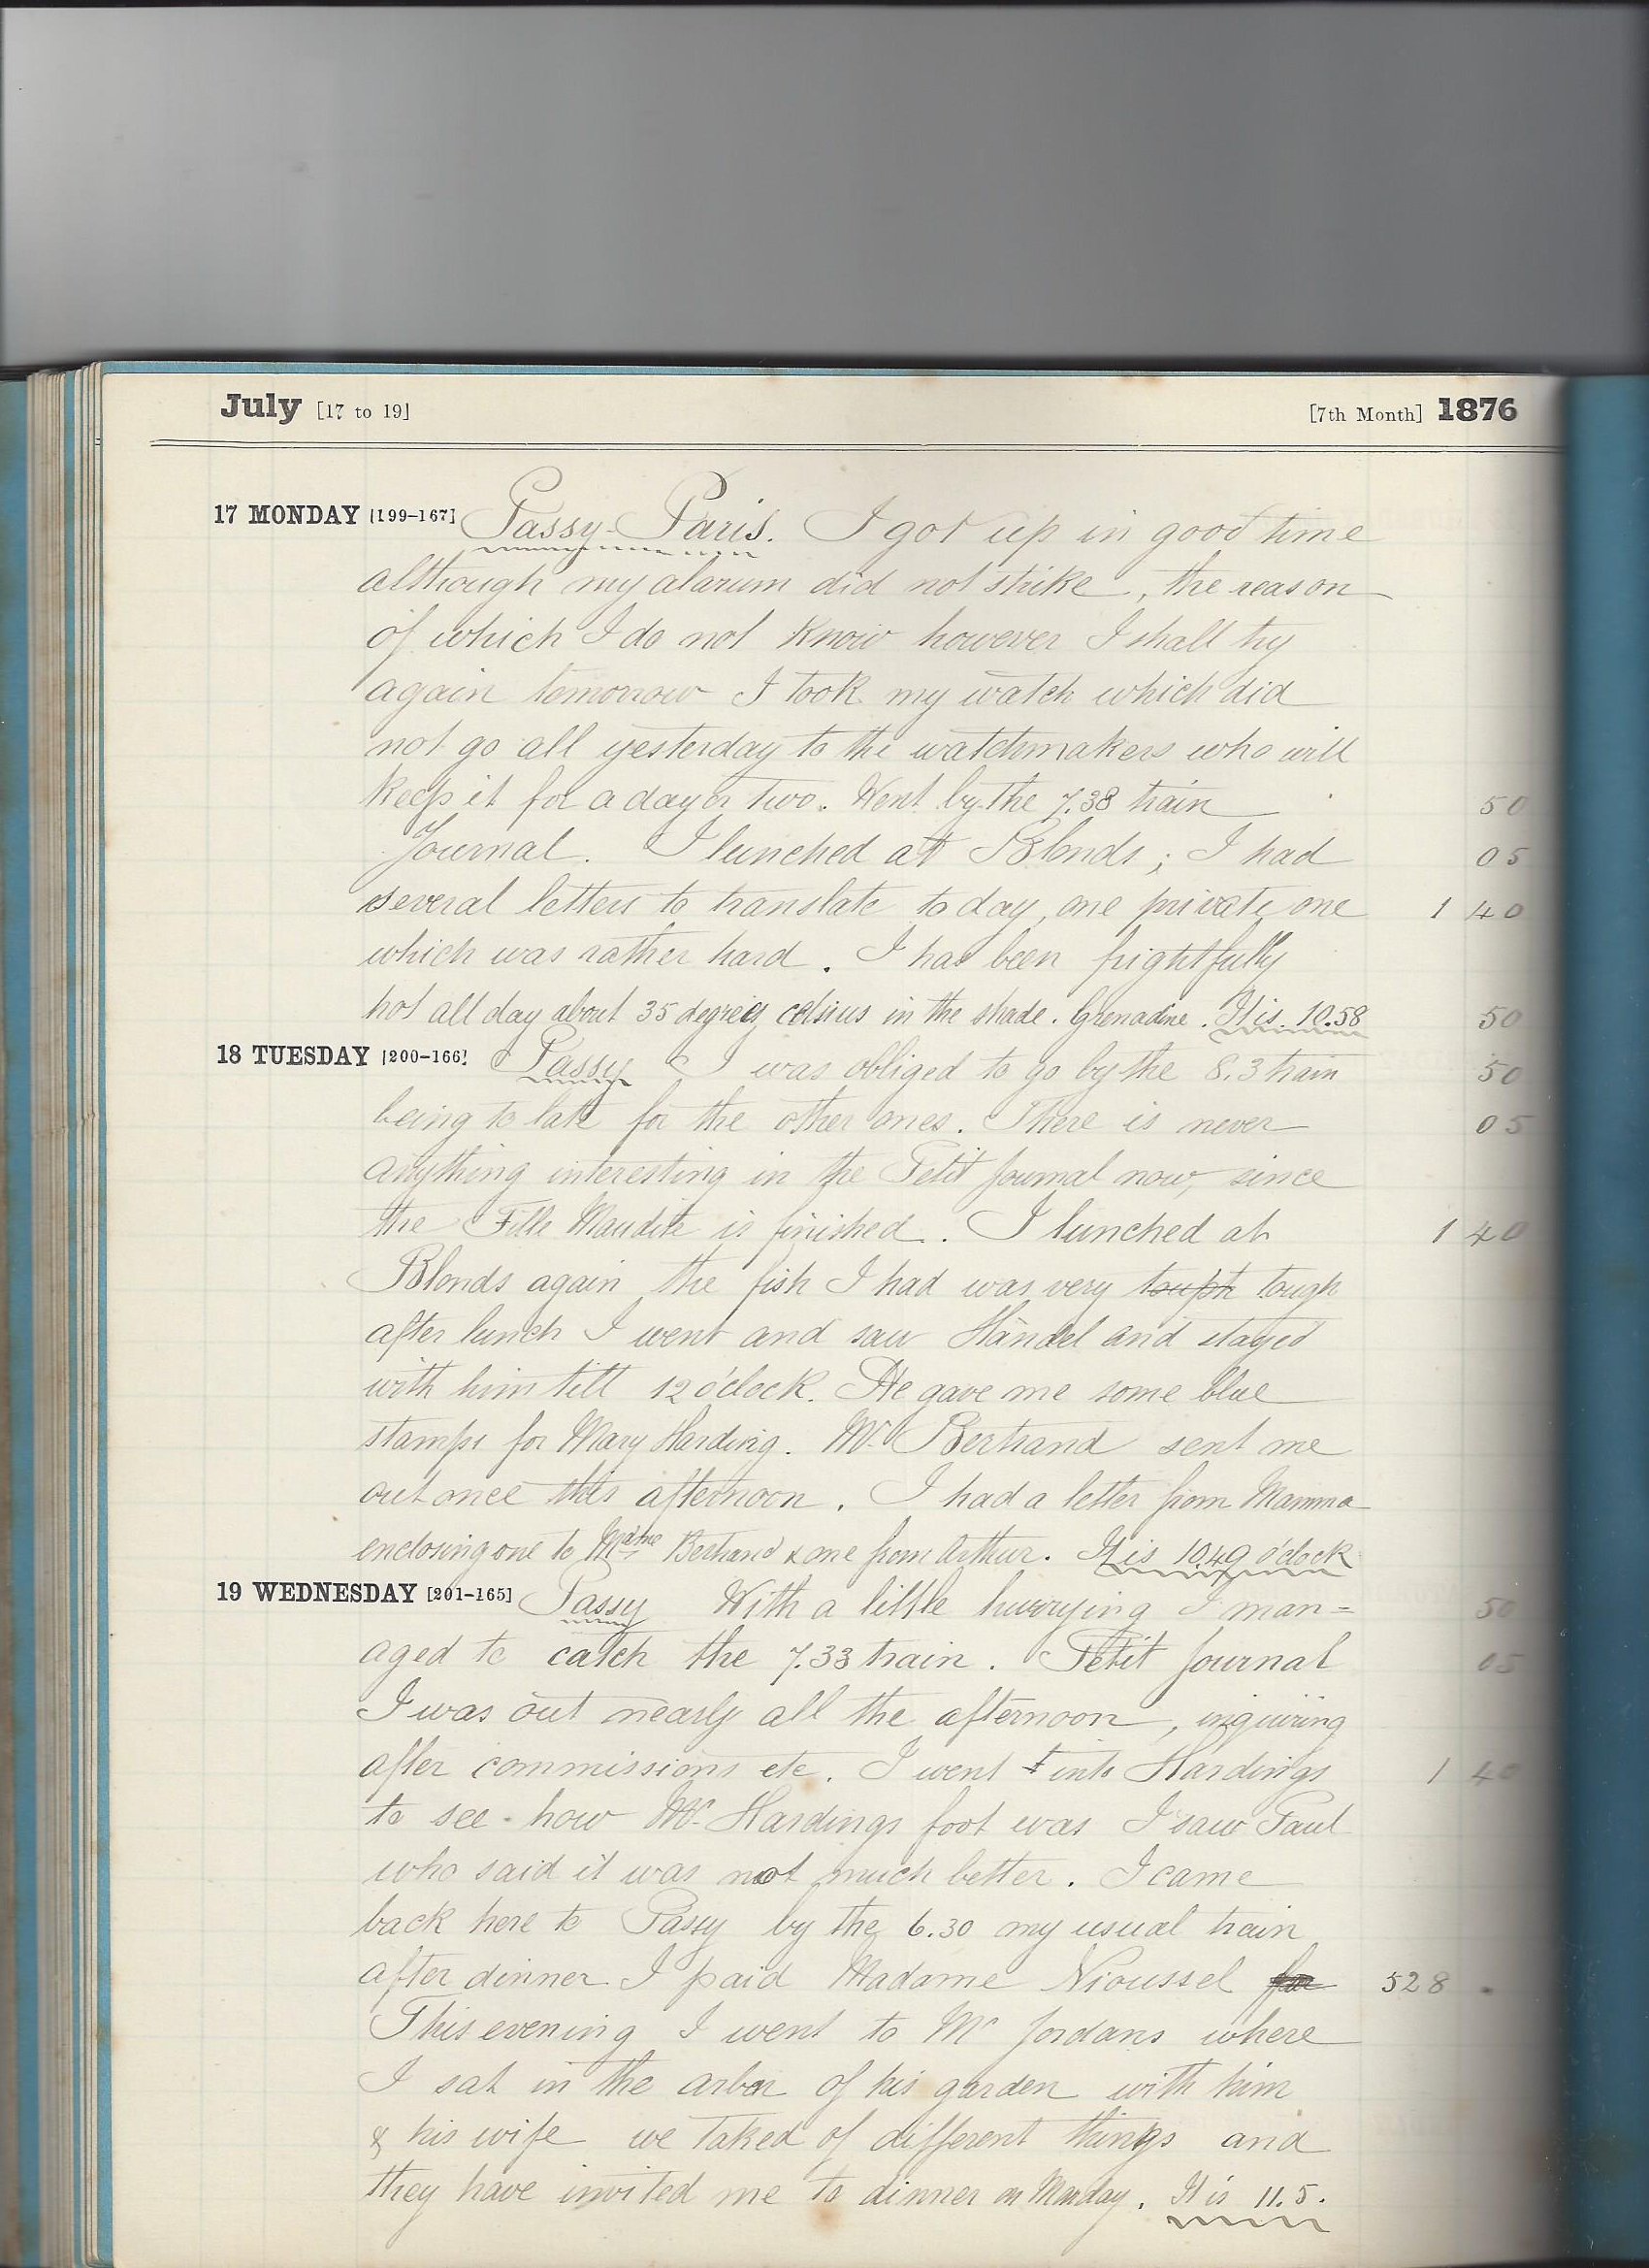 July [17 to 19] [7th Month] 1876
17 MONDAY [199-167] Passy-Paris. I got up in good time
although my alarum did not strike, the reason
of which I do not know however I shall try
again tomorrow I took my watch which did
not go all yesterday to the watchmakers who will
keep it for a day or two. Went by the 7.38 train 50
Journal. I lunched at Blonds; I had 05
several letters to translate today, one private one 1 40
which was rather hard. I has been frightfully
hot all day about 35 degrees celsius in the shade. Grenadine. It is 10.58 50
18 TUESDAY [200-166] Passy I was obliged to go by the 8.3 train 50
being to late for the other ones. There is never 05
anything interesting in the Petit Journal now, since
the Fille Maudite is finished. I lunched at 1 40
Blonds again the fish I had was very tough
after lunch I went and saw Händel and stayed
with him till 12 o'clock. He gave me some blue
stamps for Mary Harding. Mr. Bertrand sent me
out once this afternoon. I had a letter from Mamma
enclosing one to Mdme Bertrand & one from Arthur. It is 10.49 o'clock
19 WEDNESDAY [201-165] Passy With a little hurrying I man= 50
aged to catch the 7.33 train. Petit Journal 05
I was out nearly all the afternoon, inquiring
after commissions etc. I went into Hardings 1 40
to see how Mr Hardings foot was I saw Paul
who said it was not much better. I came
back here to Passy by the 6.30 my usual train
after dinner I paid Madame Nioussel for 528 .
This evening I went to Mr Jordans where
I sat in the arbor of his garden with him
& his wife we taked of different things and
they have invited me to dinner on Monday. It is 11.5.